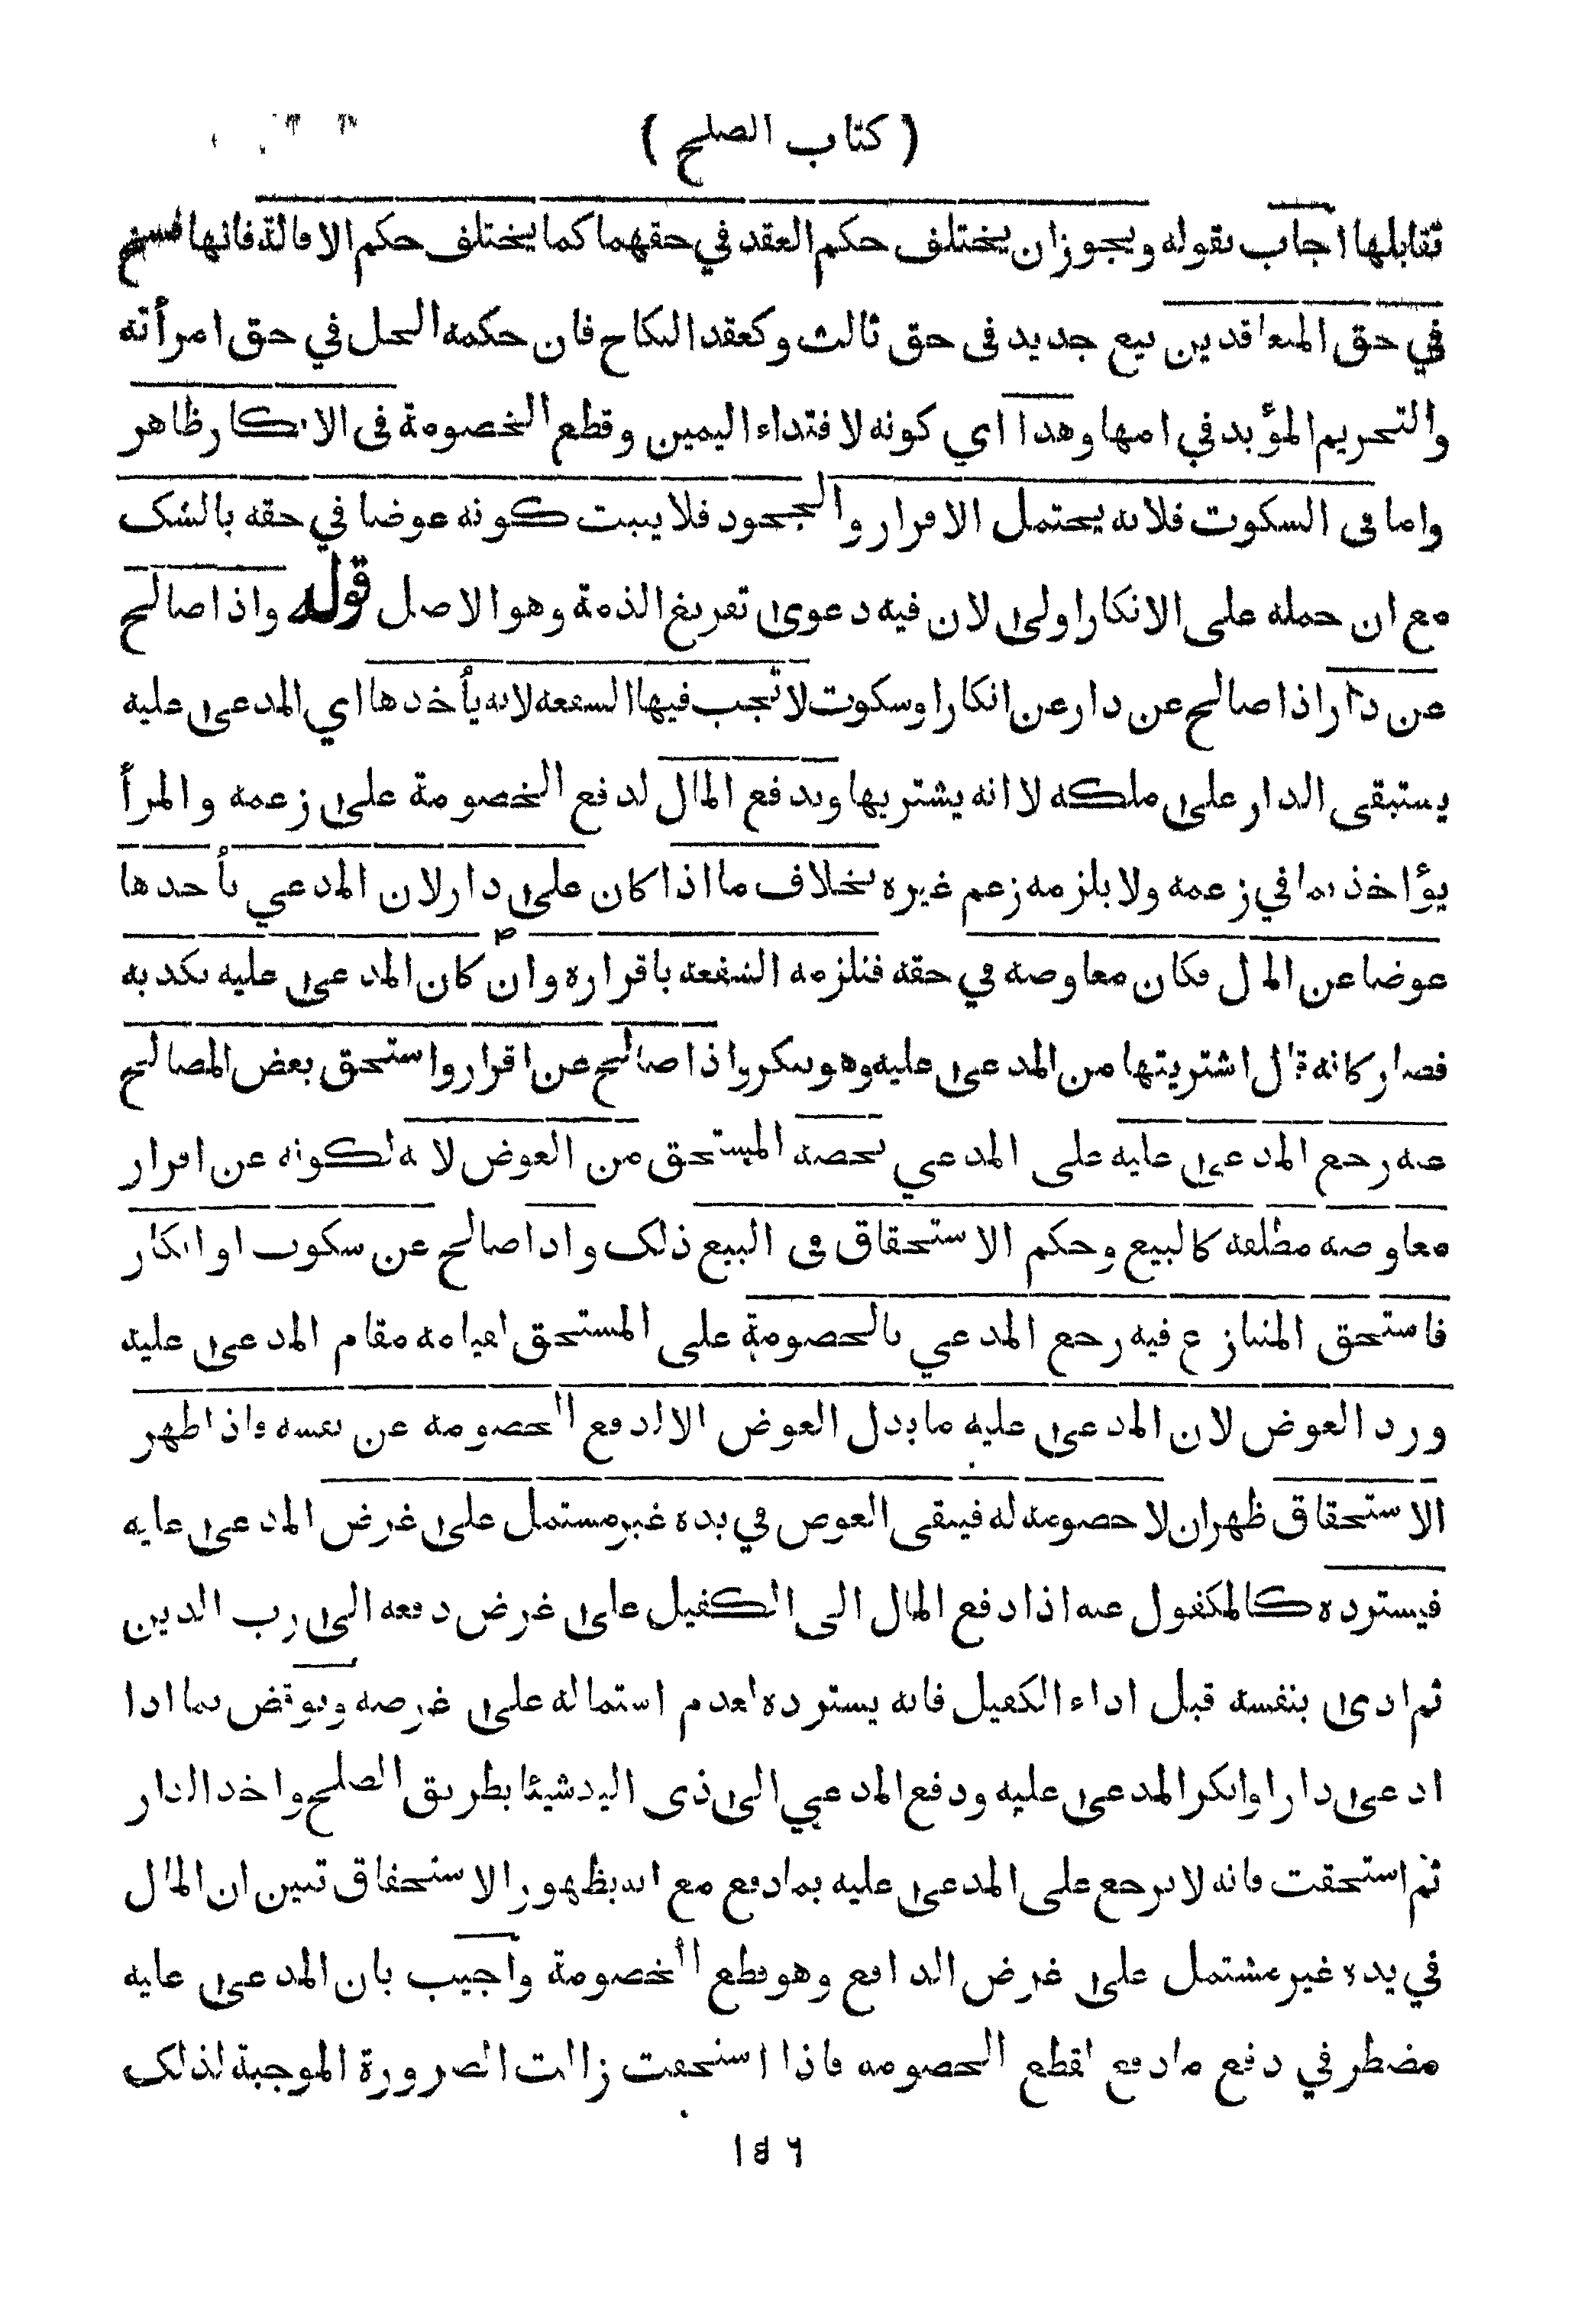 ( كتاب الصلح )
تقابلها اجاب بقوله ويجوز ان يختلف حكم العقد في حقهما كما يختلف حكم الاقالة فانها فسخ
في حق المتعاقدين بيع جديد في حق ثالث وكعقد النكاح فان حكمه الحل في حق امرأته
والتحريم المؤبد في امها وهذا اي كونه لافتداء اليمين وقطع الخصومة في الانكار ظاهر
واما في السكوت فلانه يحتمل الاقرار والجحود فلا يثبت كونه عوضا في حقه بالشك
مع ان حمله على الانكار اولى لان فيه دعوى تفريغ الذمة وهو الاصل قوله واذا صالح
عن دار اذا صالح عن دار عن انكار او سكوت لا تجب فيها الشفعة لانه يأخذها اي المدعى عليه
يستبقى الدار على ملكه لا انه يشتريها ويدفع المال لدفع الخصومة على زعمه والمرأ
يؤاخذ بما في زعمه ولا يلزمه زعم غيره بخلاف ما اذا كان على دار لان المدعي يأخدها
عوضا عن المال فكان معاوضة في حقه فتلزمه الشفعة باقراره وان كان المدعى عليه يكذبه
فصار كانه قال اشتريتها من المدعى عليه وهو ينكر واذا صالح عن اقرار واستحق بعض المصالح
عنه رجع المدعى عليه على المدعي بحصة المستحق من العوض لانه لكونه عن اقرار
معاوضة مطلقة كالبيع وحكم الاستحقاق في البيع ذلك واذا صالح عن سكوت او انكار
فاستحق المتنازع فيه رجع المدعي بالخصومة على المستحق لقيامه مقام المدعى عليه
ورد العوض لان المدعى عليه ما بذل العوض الا لدفع الخصومة عن نفسه فاذا ظهر
الاستحقاق ظهر ان لا خصومة له فيبقى العوض في يده غير مشتمل على غرض المدعى عليه
فيسترده كالمكفول عنه اذا دفع المال الى الكفيل على غرض دفعه الى رب الدين
ثم ادى بنفسه قبل اداء الكفيل فانه يسترده لعدم اشتماله على غرضه ونوقض بما اذا
ادعى دارا وانكر المدعى عليه ودفع المدعي الى ذى اليد شيئا بطريق الصلح واخذ الدار
ثم استحقت فانه لا يرجع على المدعى عليه بما دفع مع انه بظهور الاستحقاق تبين ان المال
في يده غير مشتمل على غرض الدافع وهو قطع الخصومة واجيب بان المدعى عليه
مضطر في دفع ما دفع لقطع الخصومة فاذا استحقت زالت الضرورة الموجبة لذلك